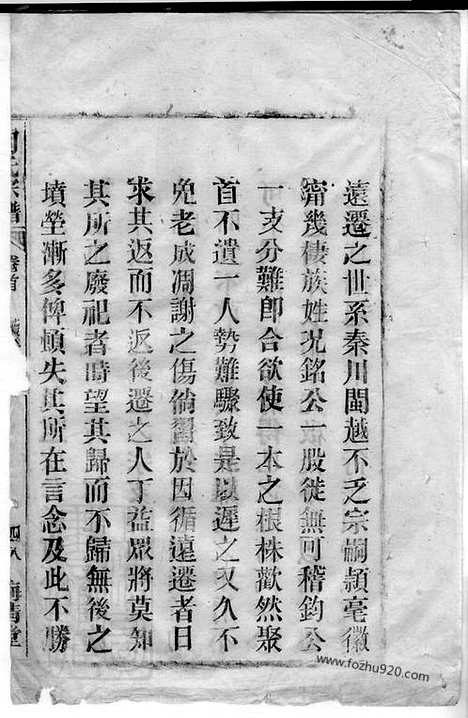 遠遷之世系秦川閩越不乏宗嗣潁亳徽
甯幾棲族姓况銘公一股徙無可稽鈞公
一支分難卽合欲使一本之根株歡然聚
首不遺一人勢難驟致是以遲之又久不
免老成凋謝之傷倘習於因循遠遷者日
求其返而不返後遷之人丁益眾將莫知
其所之廢祀者時望其歸而不歸無後之
墳塋漸多俾頓失其所在言念及此不勝
宗譜
卷首
四八
www.fozhu920.com